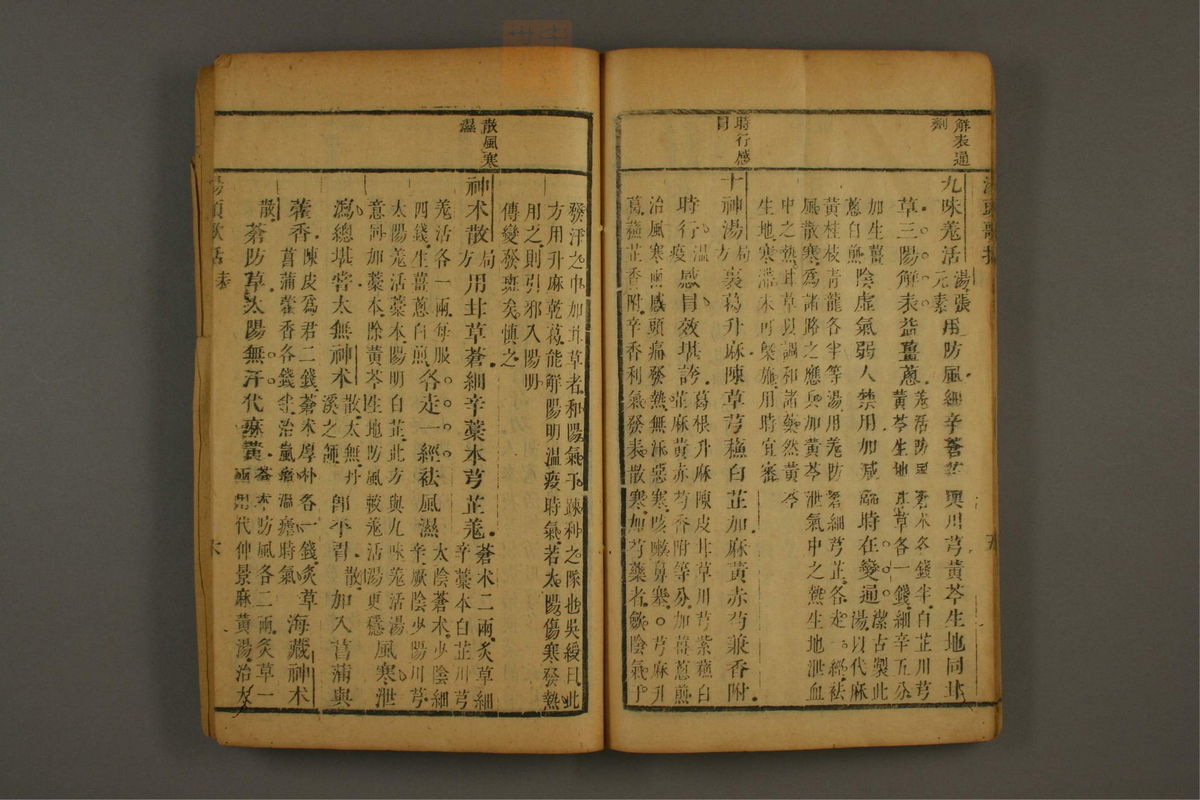 解表通
劑
九味羌活湯張元素用防風細辛蒼芷與川芎黃芩生地同甘
草三陽解表益薑蔥
羌活防風蒼朮各錢半白芷川芎
黃芩生地甘草各一錢細辛五分
加生薑
蔥白煎
陰虛氣弱人禁用加減臨時在變通
潔古製此
湯以代麻
黃桂枝青龍各半等湯用羌防蒼細芎芷各走一經祛
風散寒為諸路之應兵加黃芩泄氣中之熱生地泄血
中之熱甘草以調和諸藥然黃芩
生地寒滯未可槩施用時宜審
時行感
冒
十神湯局方裏葛升麻陳草芎蘇白芷加麻黃赤芍兼香附
時行溫疫感冒效堪誇
葛根升麻陳皮甘草川芎紫蘇白
芷麻黃赤芍香附等分加薑蔥煎
治風寒兩感頭痛發熱無汗惡寒咳嗽鼻塞○芎麻升
葛蘇芷香附辛香利氣發表散寒加芍藥者斂陰氣于
發汗之中加甘草者和陽氣于疎利之隊也吳綬曰此
方用升麻乾葛能解陽明溫疫時氣若太陽傷寒發熱
用之則引邪入陽明
傳變發斑矣慎之
散風寒
濕
神朮散局方用甘草蒼細辛藁本芎芷羌
蒼朮二兩炙草細
辛藁本白芷川芎
羌活各一兩每服
四錢生薑蔥白煎
各走一經祛風濕
太陰蒼朮少陰細
辛厥陰少陽川芎
太陽羌活藁本陽明白芷此方與九味羌活湯
意同加藁本除黃芩生地防風較羌活湯更穩
風寒泄
瀉總堪嘗太無神朮
散太無丹
溪之師
即平胃散加入菖蒲與
藿香
陳皮為君二錢蒼朮厚朴各一錢炙草
菖蒲藿香各錢半治嵐瘴瘟瘧時氣
海藏神朮
散蒼防草太陽無汗代麻黃
蒼朮防風各二兩炙草一
兩用代仲景麻黃湯治太
湯頭歌括 表 六